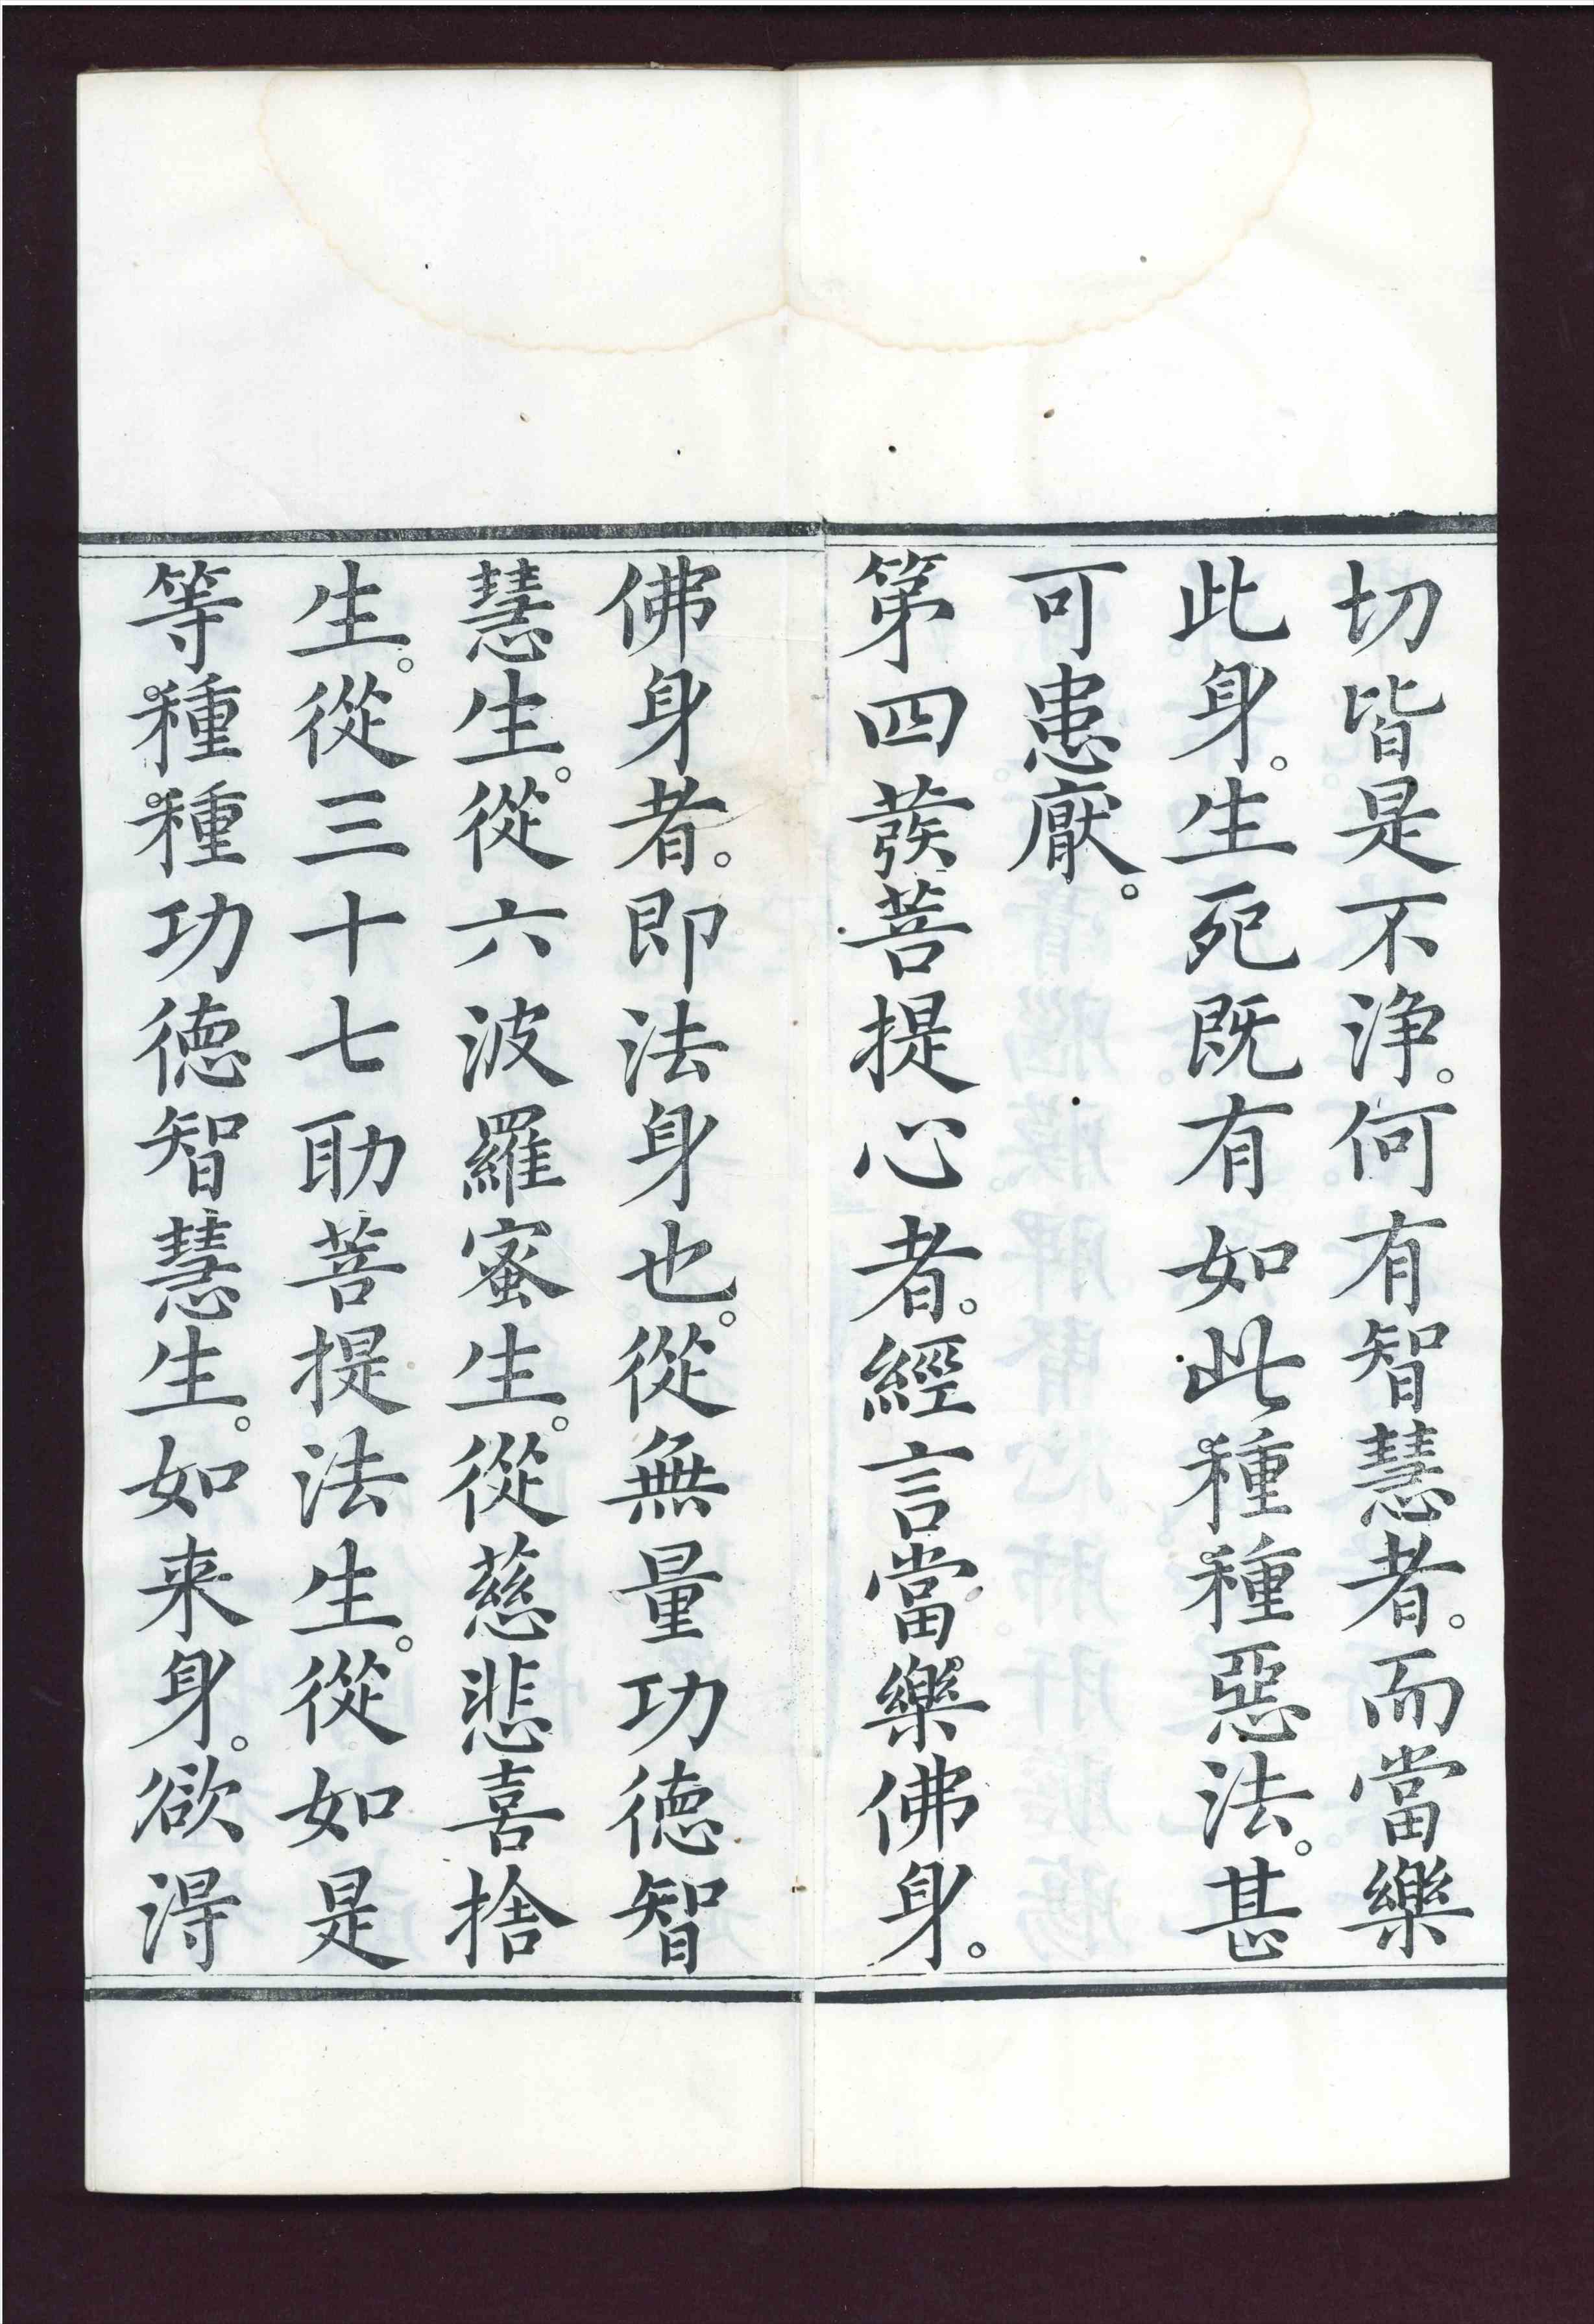 切皆是不淨。何有智慧者。而當樂
此身。生死既有如此種種惡法。甚
可患厭。
第四發菩提心者。經言當樂佛身。
佛身者。即法身也。從無量功德智
慧生。從六波羅蜜生。從慈悲喜捨
生。從三十七助菩提法生。從如是
等種種功德智慧生。如来身。欲得